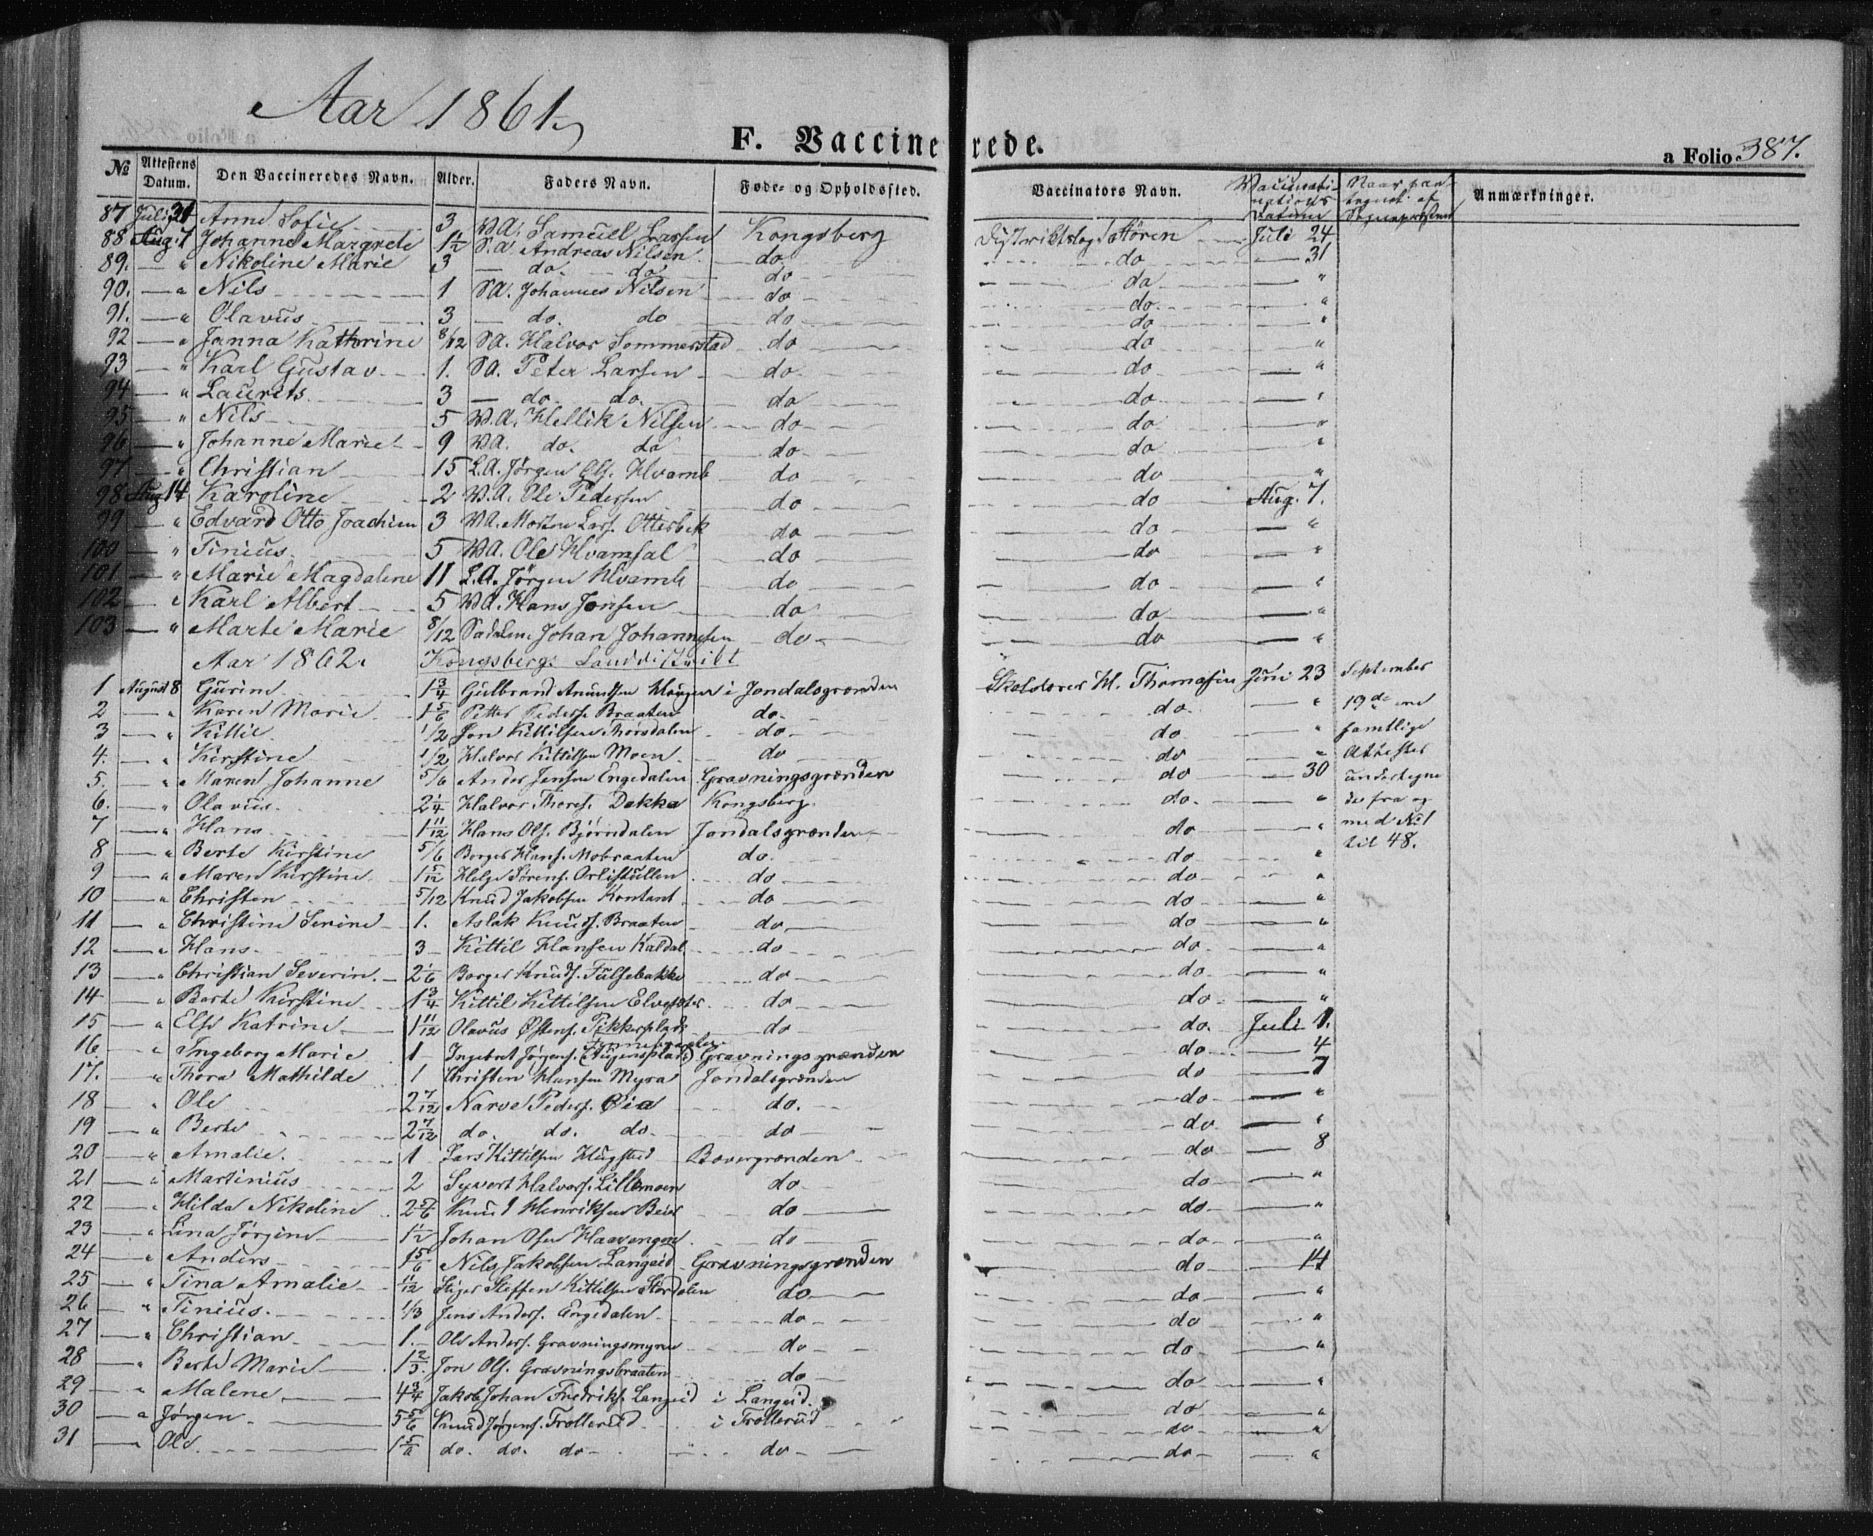 Aar 1861.
F. Vaccinerede.
a Folio 387.
№ Attestens Datum. Den Vaccineredes Navn. Alder. Faders Navn. Føde- og Opholdssted. Vaccinators Navn. Vaccinationens Datum Naar paategnet af Sognepræsten Anmærkninger.
87 Juli 31 Anne Sofie 3 Samuel Larsen Kongsberg Støren Juli 24
88 Aug. 7 Johanne Margrete 1½ Andreas Nilsen do do — 31
89. — " Nikoline Marie 3 — do. do do da "
90. — " Nils 1 SA. Johannes Nilsen do do. "
91. — " Olavus 3 — do. do do do "
92 — " Janna Kathrine 8/12 SA. Halvor Sommerstad do do — "
93 — " Karl Gustav 1. SA. Peter Larsen do. do — "
94 — " Laurits 3 — do. do. do do — "
95 — " Nils 5 Hellik Nilsen do do "
96 — " Johanne Marie 9 do. do do do "
97 — " Christian 15 L.A. Jørgen Ols. Hvamb do do "
98 Aug. 14 Karoline 2 Ole Pedersen do do Aug. 7.
99 — " Edvard Otto Joachim 3 Morten Lars. Otterbek do do — "
100 — " Tinius 5 Ole Hvamsal do do — "
101 — " Marie Magdalene 11 L.A. Jørgen Hvamb do do — "
102 — " Karl Albert 5 Hans Jonsen do do — "
103 — " Marte Marie 8/12 Johan Johannesen do do — "
Aar 1862. Kongsbergs Landdistrikt
1 August 8 Gurine 1¾ Gulbrand Amundsen Haugen i Jondalsgrenden Skolelærer H. Thomasen Juni 23 September
2 — " Karen Marie 1 5/6 Petter Peders. Braaten do. do — " 19de ere
3 — " Kittil 1/2 Jon Kittilsen Thorsdalen do. do — " samtlige
4. — " Kirstine 1/2 Halvor Kittilsen Moen do do — " Attester
5. — " Maren Johanne 5/6 Anders Jensen Engedalen Gravningsgrenden do — 30 undertegne
6. — " Olavus 2¼ Halvor Thores. Dokka Kongsberg. do. — " des fra og
7 — " Hans 1 11/12 Hans Ols. Bjørndalen Jondalsgrenden do — " med No 1
8 — " Berte Kirstine 5/6 Borger Hans. Mobraaten do. do " til 48.
9 — " Maren Kirstine 1 5/12 Helge Sørens. do do — "
10 — " Christen 5/12 Knud Jakobsen Kontant do do — "
11 — " Christine Serine 1. Aslak Knuds. Braaten do do — "
12 — " Hans 3 Kittil Hansen Kaldal do do — "
13 — " Christian Severin 2 1/6 Borger Knuds. Fulsebakke do do — "
14 — " Berte Kirstine 1¾ Kittil Kittilsen do do — "
15 — " Else Katrine 1 11/12 Olavus Østens. do do. Juli 1.
16 — " Ingeborg Marie 1 Ingebret Jørgens. Gravningsgrenden do — 4
17. " Thora Mathilde 1 Christen Hansen Myra Jondalsgrenden do — 7
18 — " Ole 2 7/12 Narve Peders. Øia do. do — "
19 — " Berte 2 7/12 do. do. do do do. — "
20 — " Amalie. 1 Lars Kittilsen Hugsted Bævergrenden do — 8
21 — " Martinius 2 Syvert Halvors. Lillemoen do do — "
22 — " Hilda Nikoline 2 5/6 Knud Henriksen do do. — "
23 — " Lina Jørgine 1½ Johan Olsen Haavengen do do. — "
24 — " Anders 1 5/6 Nils Jakobsen Langeid Gravningsgrenden do — 14
25 — " Tina Amalie 1/12 Steffen Kittilsen Stordalen do do — "
26 — " Tinius. 1/3 Jens Anders. Engedalen do do — "
27 — " Christian 1. Ole Anders. Gravningsmyra do do — "
28 — " Berte Marie 1 2/3 Jon Ols. Gravningsbraaten do do — "
29 — " Malene 4¾ Jakob Johan Fredriks. Langeid i Langeid. do — "
30 — " Jørgen 5 5/6 Knud Jørgens. Trollerud i Trollerud do — "
31 — " Ole 1 5/6 do. do. do do do — "